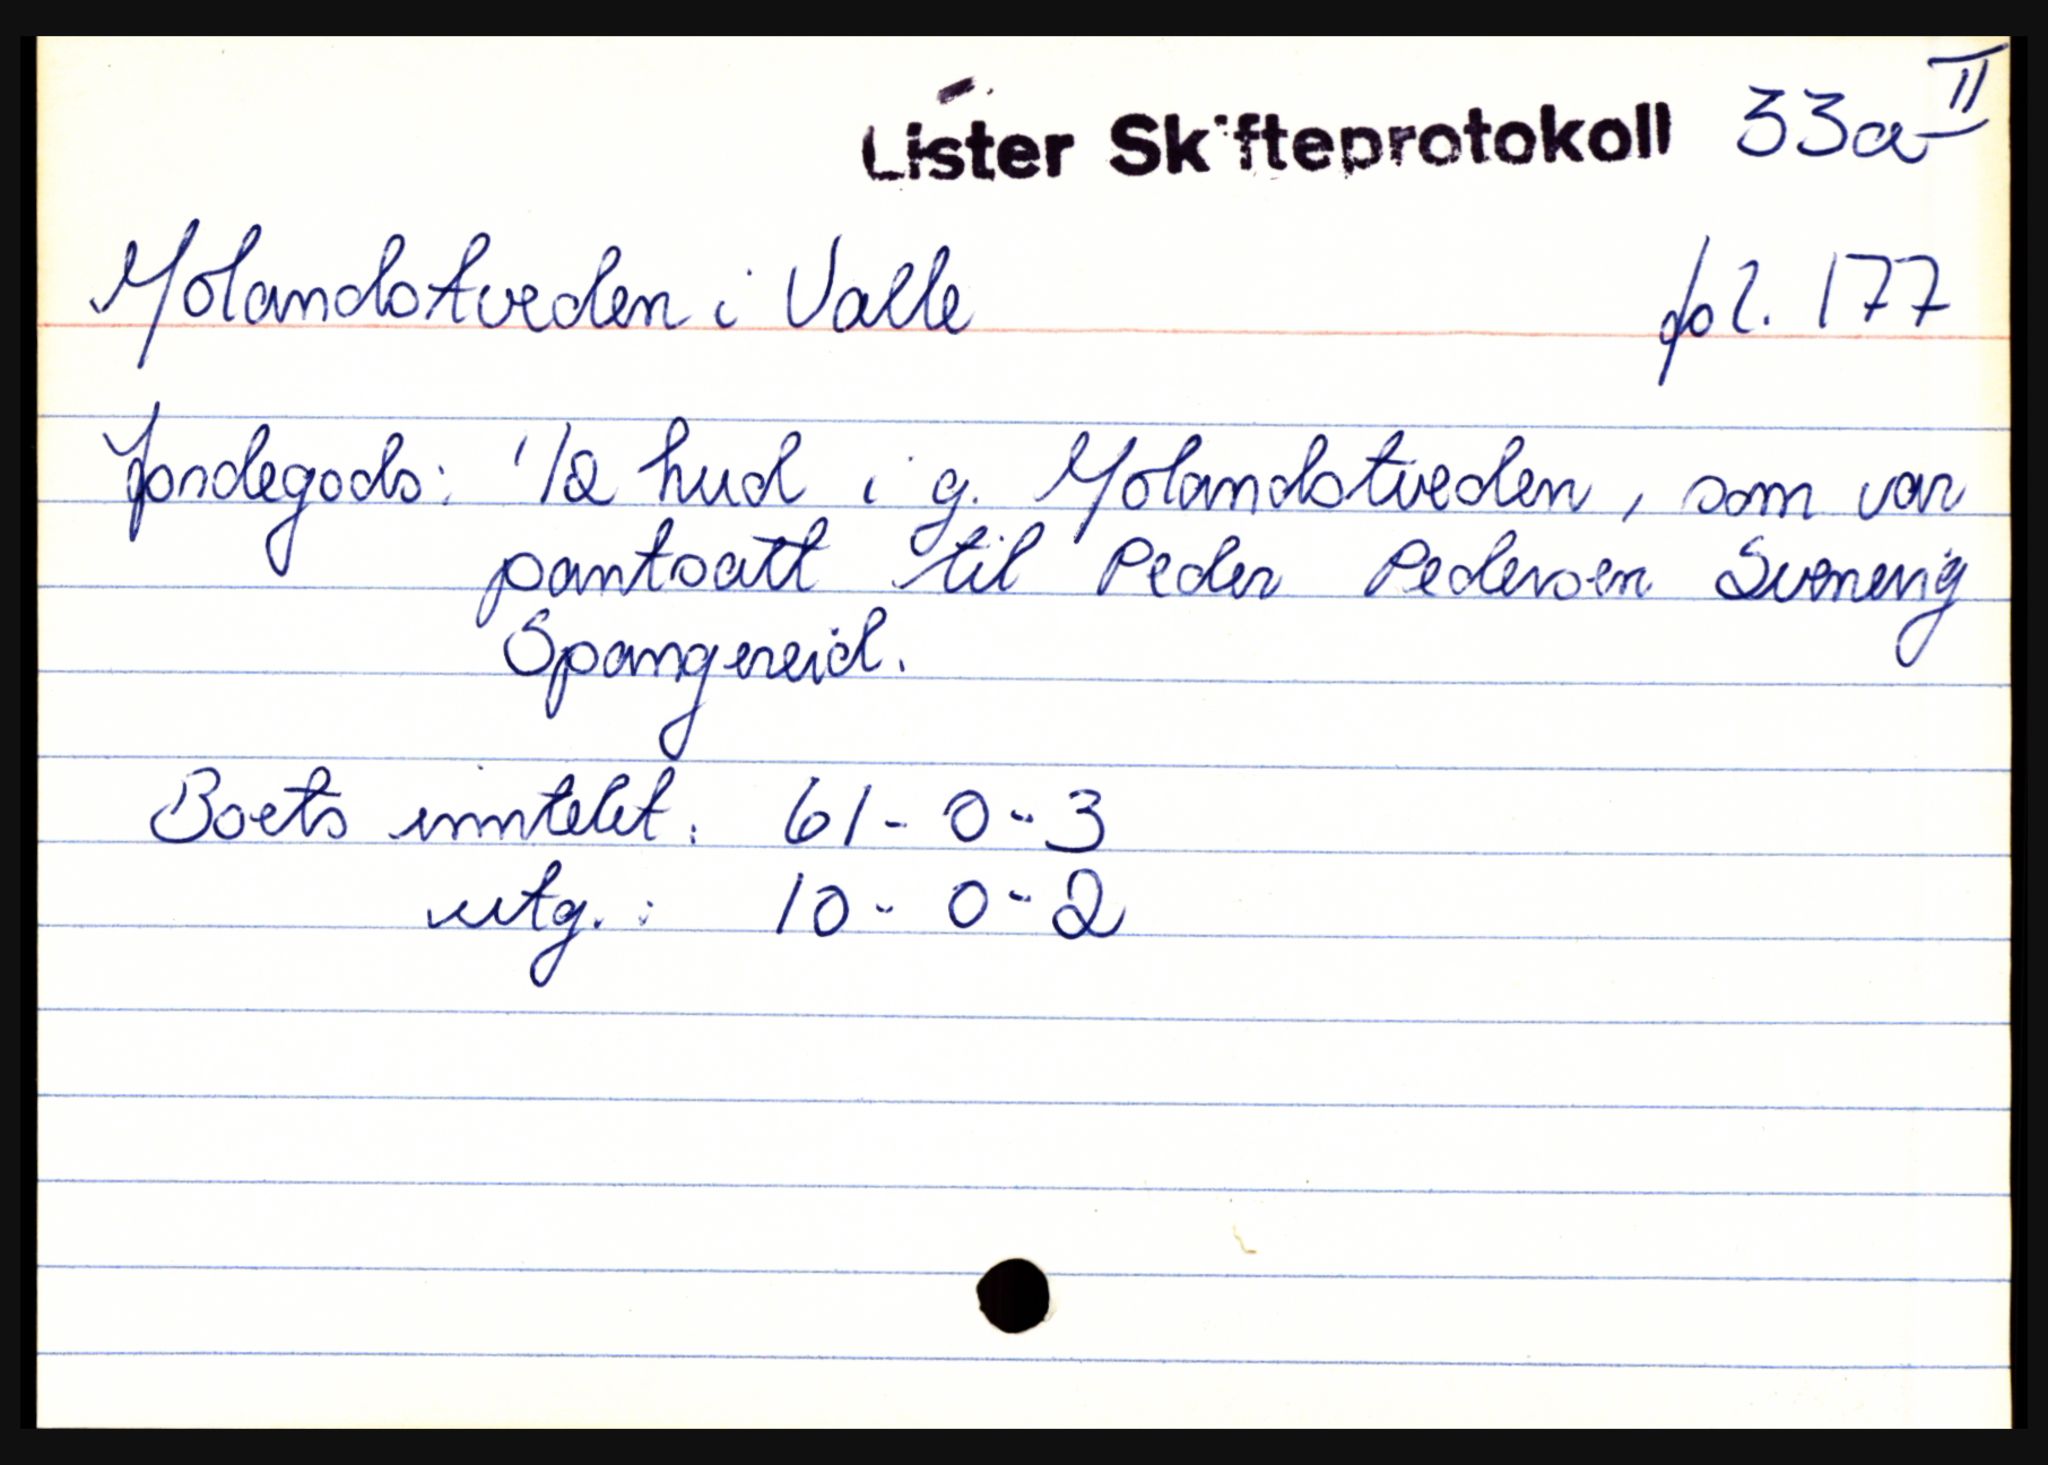 Lister Skifteprotokoll 33a II
Molandstveden i Valle fol. 177
Jordegods: 1/2 hud i g. Molandstveden, som var
pantsatt til Peder Pedersen Svennevig
Spangereid.
Boets inntekt: 61 - 0 - 3
utg. : 10 - 0 - 2